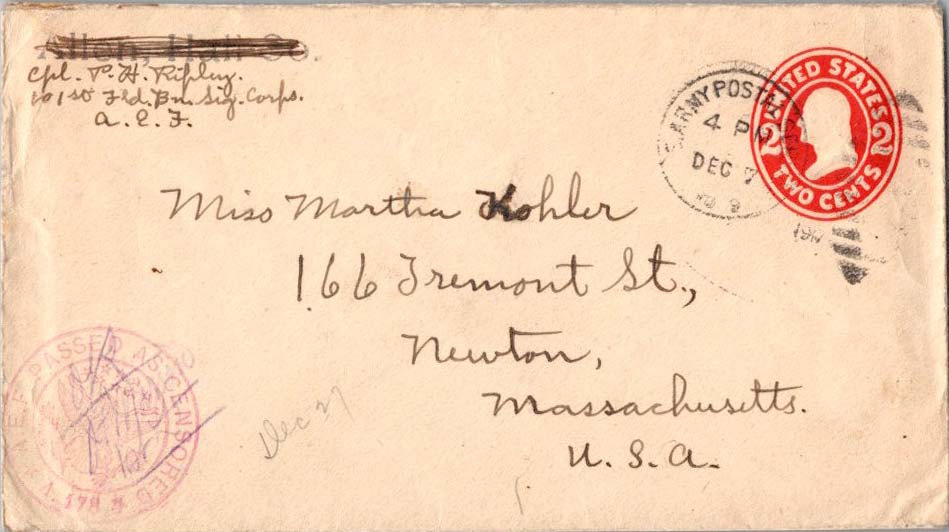 Allen, Hall Co.
Cpl. P. H. Ripley.
101st Fld. Bn. Sig. Corps.
A. E. F.
ARMY POSTAL
4 PM
DEC 7
NO 9
UNITED STATES
2 2
TWO CENTS
Miss Martha Kohler
166 Tremont St.,
Newton,
Massachusetts.
U. S. A.
Dec 27
A.E.F. PASSED AS CENSORED